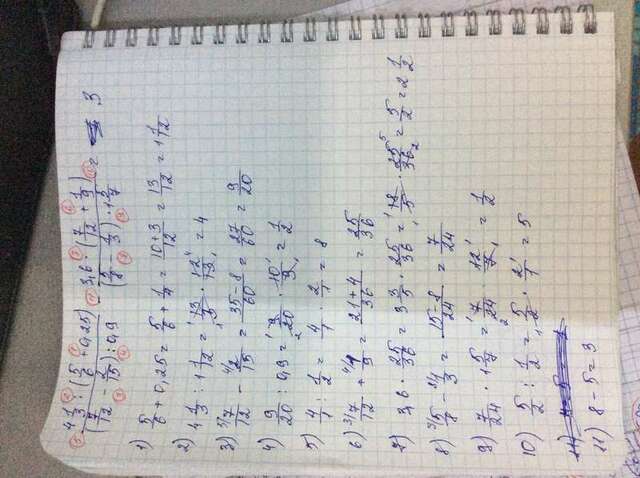 4 1/3 : (5/6 + 0,25) / (7/12 - 2/15) : 0,9 - 3,6 · (7/12 + 1/9) / (5/8 - 1/3) · 1 5/7 = 3
1) 5/6 + 0,25 = 5/6 + 1/4 = 10+3/12 = 13/12 = 1 1/12
2) 4 1/3 : 1 1/12 = 13/3 · 12/13 = 4
3) 7/12 - 2/15 = 35-8/60 = 27/60 = 9/20
4) 9/20 : 0,9 = 9/20 · 10/9 = 1/2
5) 4/1 : 1/2 = 4/1 · 2/1 = 8
6) 7/12 + 1/9 = 21+4/36 = 25/36
7) 3,6 · 25/36 = 3 3/5 · 25/36 = 18/5 · 25/36 = 5/2 = 2 1/2
8) 5/8 - 1/3 = 15-8/24 = 7/24
9) 7/24 · 1 5/7 = 7/24 · 12/7 = 1/2
10) 5/2 : 1/2 = 5/2 · 2/1 = 5
11) 8-5=3